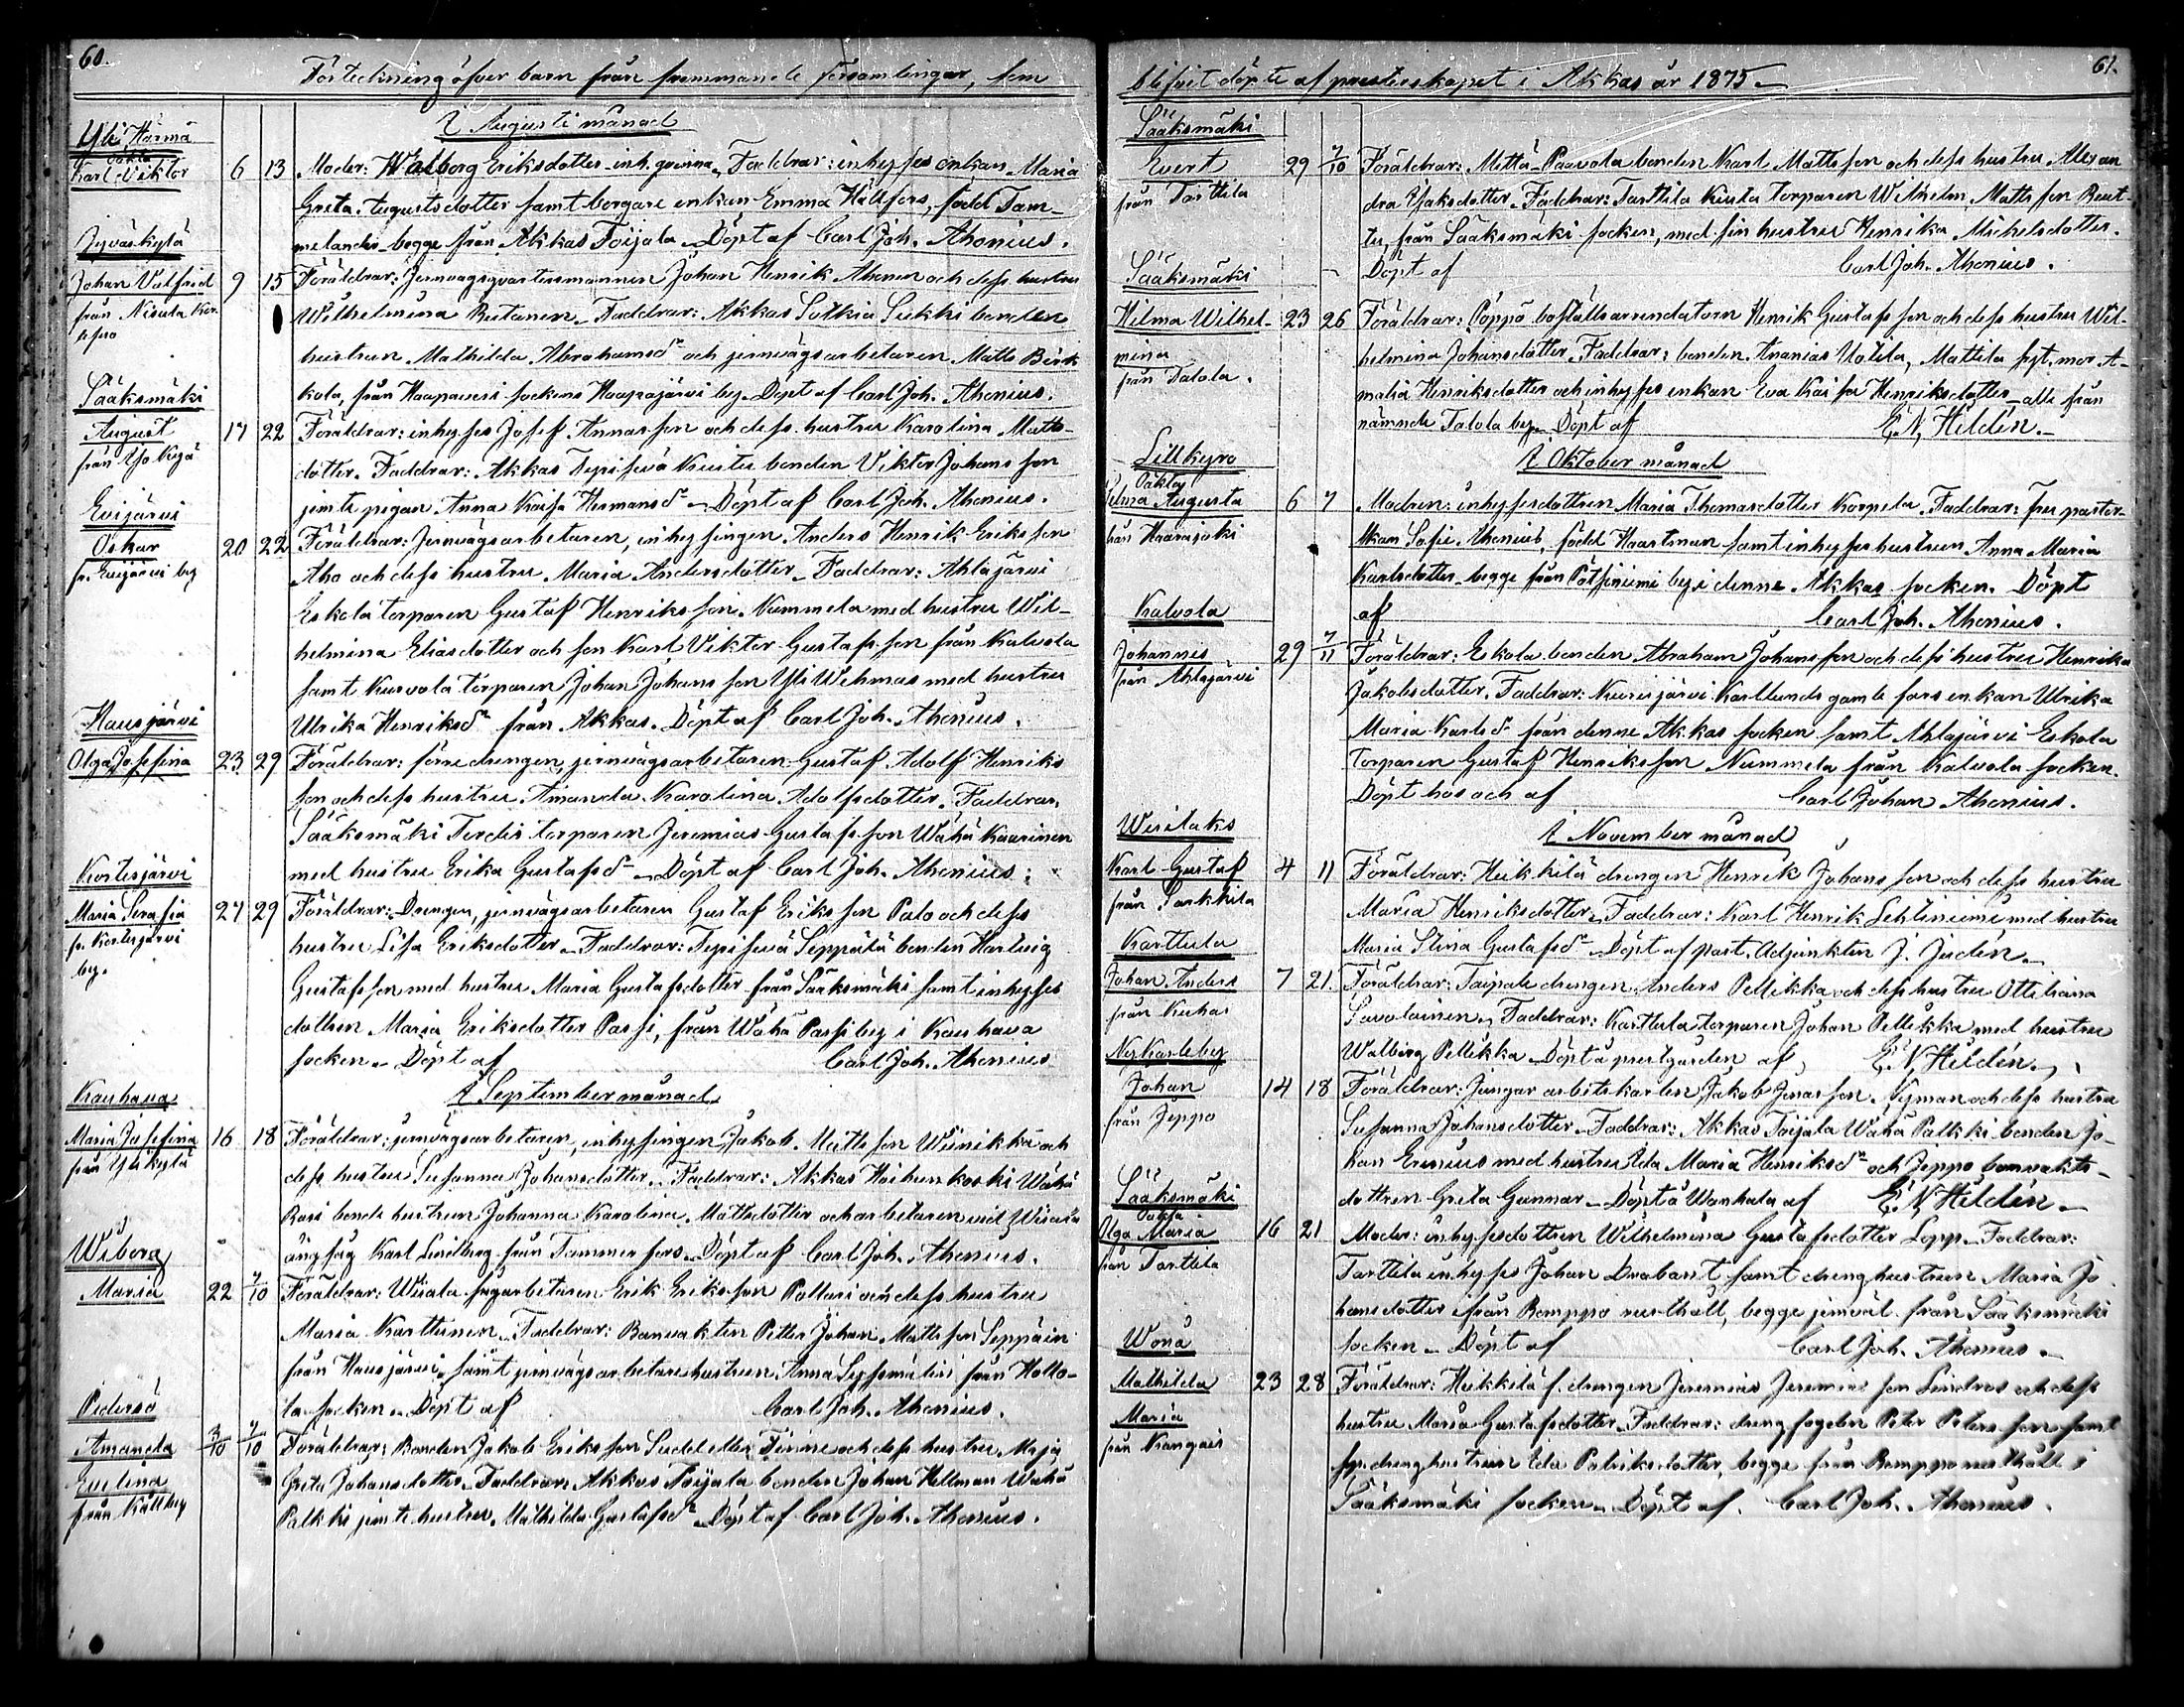 60.
Förteckning öfver barn från frammande församlingar, som
I Augusti månad
Yli Härmä
oäkta
Karl Viktor 6 13 Moder: Walborg Eriksdotter inh. qvinna. Faddrar: inhyses enkan Maria
Greta Augustsdotter samt borgare enkan Emma Hällfors, född Tam-
melander begge från Akkas Toijala. Döpt af Carl Joh. Ahonius.
Jyväskylä
Johan Valfrid 9 15 Föräldrar: Jernvägsqvartersmannen Johan Henrik Ahonen och dess hustru
från Nisula
Wilhelmina Rutanen. Faddrar: Akkas Sotkia Sukki bonden
hustrun Mathilda Abrahamsdr och jernvägsarbetaren Matts Birk
kola, från Haapavesi sockens Haapajärvi by. Döpt af Carl Joh. Ahonius.
Sääksmäki
August 17 22 Föräldrar: inhyses Josef Annasson och dess hustru Karolina Matts-
dotter. Faddrar: Akkas Terisevä Kusta bonden Viktor Johansson
jemte pigan Anna Kaisa Hermansdr. Döpt af Carl Joh. Ahonius.
Evijärvi
Oskar 20 22 Föräldrar: Jernvägsarbetaren, inhysingen Anders Henrik Eriksson
fr. Evijärvi by
Aho och dess hustru Maria Andersdotter. Faddrar: Ahlajärvi
Eskola torparen Gustaf Henriksson Nummela med hustru Wil-
helmina Eliasdotter och son Karl Viktor Gustafsson från Kalvola
samt Kurvola torparen Johan Johansson Yli Wehmas med hustru
Ulrika Henriksdr från Akkas. Döpt af Carl Joh. Ahonius.
Hausjärvi
Olga Josefina 23 29 Föräldrar: förre drengen, jernvägsarbetaren Gustaf Adolf Henriks
son och dess hustru Amanda Karolina Adolfsdotter. Faddrar,
Sääksmäki Terdis torparen Jeremias Gustafsson Wähä Kaarinen
med hustru Erika Gustafsdr. Döpt af Carl Joh. Ahonius.
Kortesjärvi
Maria Serafia 27 29 Föräldrar: Drengen, jernvägsarbetaren Gustaf Eriksson Palo och dess
fr. Kortesjärvi
by.
hustru Lisa Eriksdotter. Faddrar: Terisevä Seppälä bonden Hartvig
Gustafsson med hustru Maria Gustafsdotter från Sääksmäki samt inhyses
dottren Maria Eriksdotter Passi, från Wähä Passi by i Kauhava
socken. Döpt af Carl Joh. Ahonius
I September månad
Kauhava
Maria Josefina 16 18 Föräldrar: jernvägsarbetaren, inhysingen Jakob Mattsson Wiinikka och
från Ylikylä
dess hustru Susanna Johansdotter. Faddrar: Akkas Haihunkoski Wähä
Rasi bonde hustrun Johanna Karolina Mattsdotter och arbetaren vid Wiiala
ångsåg Karl Lindberg från Tammerfors. Döpt af Carl Joh. Ahonius.
Wiborg
Maria 22 7/10 Föräldrar: Wiiala sågarbetaren Erik Eriksson Pollari och dess hustru
Maria Karttunen. Faddrar: Banvakten Petter Johan Mattsson Seppäin
från Hausjärvi, samt jernvägsarbetarehustrun Anna från Hollo-
la socken. Döpt af Carl Joh. Ahonius.
Pedersö
Amanda 3/10 7/10 Föräldrar: Bonden Jakob Eriksson Sudd eller Finne och dess hustru Maja
Evelina
från Kållby
Greta Johansdotter. Faddrar: Akkas Toijala bonden Johan Hellman Wähä
Palkki jemte hustru Mathilda Gustafsdr. Döpt af Carl Joh. Ahonius.
61.
blifvit döpte af presterskapet i Akkas år 1875
Sääksmäki
Evert 29 7/10 Föräldrar: Mettä-Paavola bonden Karl Mattsson och dess hustru Alexan
från Tarttila
dra Isaksdotter. Faddrar: Tarttila Kusta torparen Wilhelm Mattsson Ruut-
tu, från Sääksmäki socken, med sin hustru Henrika Michelsdotter.
Döpt af Carl Joh. Ahonius.
Sääksmäki
Hilma Wilhel- 23 26 Föräldrar: Pappo boställsarrendatorn Henrik Gustafsson och dess hustru Wil-
mina
från Talola.
helmina Johansdotter. Faddrar: bonden Ananias Uotila, Mattila syt. mor A-
malia Henriksdotter och inhyses enkan Eva Kaisa Henriksdotter alla från
nämnde Talola by. Döpt af E. N. Hildén.
I Oktober månad
Lillkyro
Oäkta
Selma Augusta 6 7 Modren: inhysesdottren Maria Thomasdotter Korpela. Faddrar: fru pastor-
från Haarajoki
skan Sofie Ahonius, född Haartman samt inhyseshustrun Anna Maria
Karlsdotter begge från Pätsiniemi by i denne Akkas socken. Döpt
af Carl Joh. Ahonius.
Kalvola
Johannis 29 7/11 Föräldrar: Eskola bonden Abraham Johansson och dess hustru Henrika
från Ahlajärvi
Jakobsdotter. Faddrar: Kurisjärvi Karllunds gamle fars enkan Ulrika
Maria Karlsdr från denne Akkas socken samt Ahlajärvi Eskola
torparen Gustaf Henriksson Nummela från Kalvola socken.
Döpt hos och af Carl Johan Ahonius.
I November månad
Wesilaks
Karl Gustaf 4 11 Föräldrar: Heikkilä drengen Henrik Johansson och dess hustru
från Sarkkila
Maria Henriksdotter. Faddrar: Karl Henrik Lehtiniemi med hustru
Maria Stina Gustafsdr. Döpt af past. Adjunkten J. Judén.
Karttula
Johan Anders 7 21. Föräldrar: Taipale drengen Anders Pellikka och dess hustru Ottiliana
från Kuhas
Savolainen. Faddrar: Karttula torparen Johan Pellikka med hustru
Walborg Pellikka. Döpt å prestgården af E. N. Hildén.
Nykarleby
Johan 14 18 Föräldrar: Jungar arbetskarlen Jakob Jonasson Nyman och dess hustru
från Jeppo
Susanna Johansdotter. Faddrar: Akkas Toijala Wähä Palkki bonden Jo-
han Erenius med hustru Ida Maria Henriksdr och Jeppo banvakts-
dottren Greta Gunnar. Döpt å Wanhala af E. N. Hildén.
Sääksmäki
Oäkta
Olga Maria 16 21 Moder: inhysesdottren Wilhelmina Gustafsdotter Lepp. Faddrar:
från Tarttila
Tarttila inhyses Johan Drabant samt drenghustrun Maria Jo
hansdotter från Remppo rusthåll, begge jemväl från Sääksmäki
socken. Döpt af Carl Joh. Ahonius.
Wånå
Mathilda 23 28 Föräldrar: Heikkilä f. drengen Jeremias Jeremiasson Lindros och dess
Maria
från Kangais
hustru Maria Gustafsdotter. Faddrar: drengfogden Peter Petersson samt
drenghustrun Ida Patriksdotter, begge från Remppo rusthåll i
Sääksmäki socken. Döpt af Carl Joh. Ahonius.